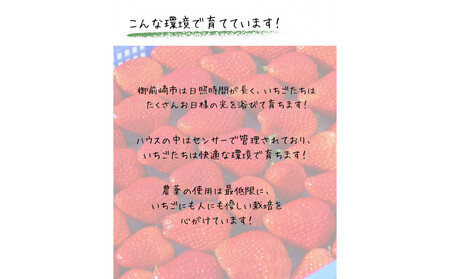 こんな環境で育てています!
御前崎市は日照時間が長く、いちごたちは
たくさんお日様の光を浴びて育ちます!
ハウスの中はセンサーで管理されており、
いちごたちは快適な環境で育ちます!
農薬の使用は最低限に、
いちごにも人にも優しい栽培を
心がけています!